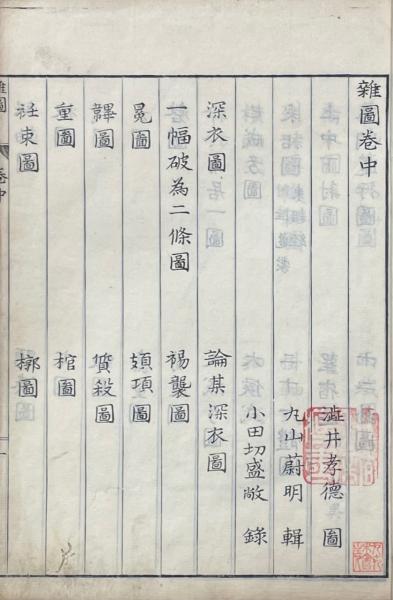 雜圖卷中
澁井孝德 圖
九山蔚明 輯
小田切盛敞 錄
深衣圖 論某深衣圖
一幅破為二條圖 裼襲圖
冕圖 頍項圖
韠圖 質殺圖
重圖 棺圖
衽束圖 槨圖
雜圖 卷中